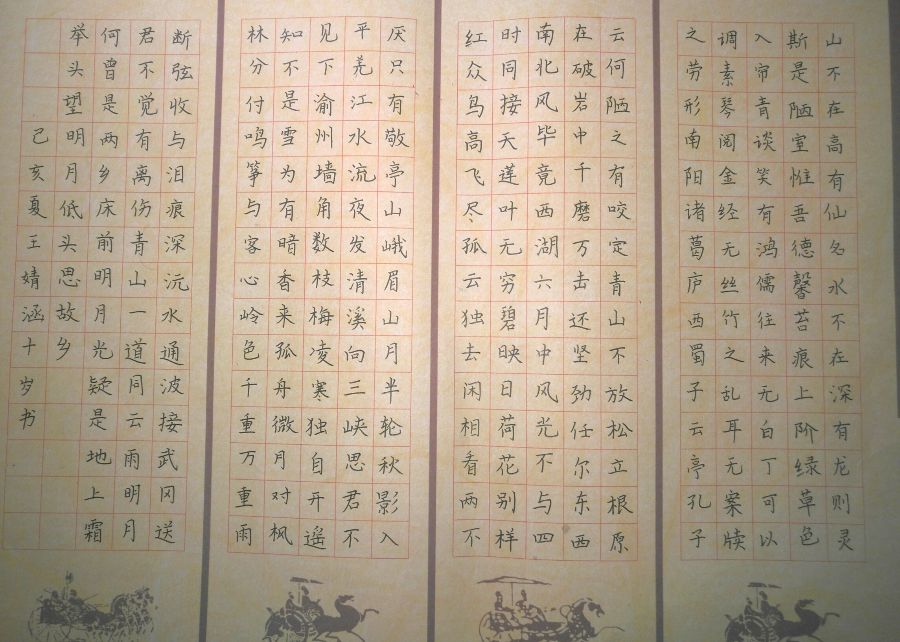 山不在高有仙名水不在深有龙则灵
斯是陋室惟吾德馨苔痕上阶绿草色
入帘青谈笑有鸿儒往来无白丁可以
调素琴阅金经无丝竹之乱耳无案牍
之劳形南阳诸葛庐西蜀子云亭孔子
云何陋之有咬定青山不放松立根原
在破岩中千磨万击还坚劲任尔东西
南北风毕竟西湖六月中风光不与四
时同接天莲叶无穷碧映日荷花别样
红众鸟高飞尽孤云独去闲相看两不
厌只有敬亭山峨眉山月半轮秋影入
平羌江水流夜发清溪向三峡思君不
见下渝州墙角数枝梅凌寒独自开遥
知不是雪为有暗香来孤舟微月对枫
林分付鸣筝与客心岭色千重万重雨
断弦收与泪痕深沅水通波接武冈送
君不觉有离伤青山一道同云雨明月
何曾是两乡床前明月光疑是地上霜
举头望明月低头思故乡
己亥夏王婧涵十岁书